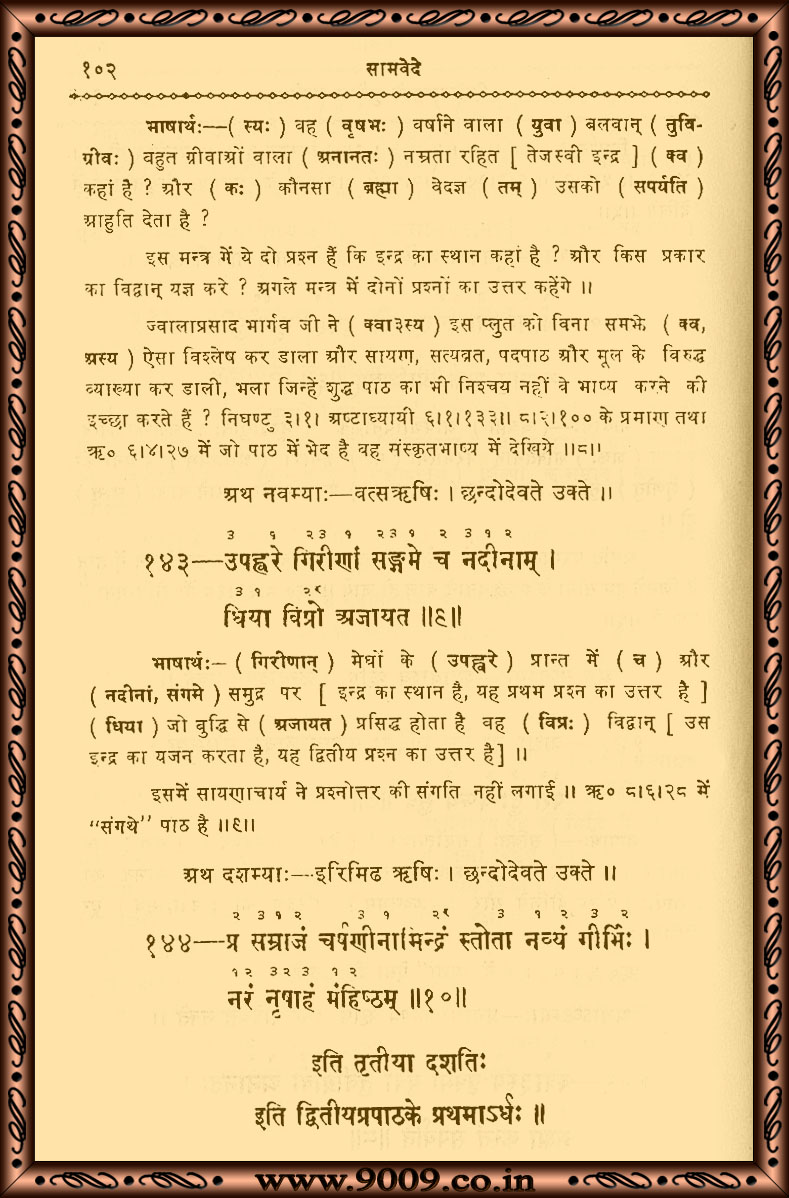 १०२ सामवेदे
भाषार्थः—( स्यः ) वह ( वृषभः ) वर्षाने वाला ( युवा ) बलवान् ( तुवि-
ग्रीवः ) बहुत ग्रीवाओं वाला ( अनानतः ) नम्रता रहित [ तेजस्वी इन्द्र ] ( क्व )
कहां है ? और ( कः ) कौनसा ( ब्रह्मा ) वेदज्ञ ( तम् ) उसको ( सपर्यति )
आहुति देता है ?
इस मन्त्र में ये दो प्रश्न हैं कि इन्द्र का स्थान कहां है ? और किस प्रकार
का विद्वान् यज्ञ करे ? अगले मन्त्र में दोनों प्रश्नों का उत्तर कहेंगे ॥
ज्वालाप्रसाद भार्गव जी ने ( क्वा३स्य ) इस प्लुत को विना समझे ( क्व,
अस्य ) ऐसा विश्लेष कर डाला और सायण, सत्यव्रत, पदपाठ और मूल के विरुद्ध
व्याख्या कर डाली, भला जिन्हें शुद्ध पाठ का भी निश्चय नहीं वे भाष्य करने की
इच्छा करते हैं ? निघण्टु ३।१। अष्टाध्यायी ६।१।१३३॥ ८।२।१०० के प्रमाण तथा
ऋ० ६।४।२७ में जो पाठ में भेद है वह संस्कृतभाष्य में देखिये ॥८॥
अथ नवम्याः—वत्सऋषिः । छन्दोदेवते उक्ते ॥
३ १ २३ १ २३ १ २ ३ १ २
१४३—उपह्वरे गिरीणां सङ्गमे च नदीनाम् ।
३ १ २र
धिया विप्रो अजायत ॥९॥
भाषार्थः—( गिरीणान् ) मेघों के ( उपह्वरे ) प्रान्त में ( च ) और
( नदीनां, संगमे ) समुद्र पर [ इन्द्र का स्थान है, यह प्रथम प्रश्न का उत्तर है ]
( धिया ) जो बुद्धि से ( अजायत ) प्रसिद्ध होता है वह ( विप्रः ) विद्वान् [ उस
इन्द्र का यजन करता है, यह द्वितीय प्रश्न का उत्तर है] ॥
इसमें सायणाचार्य ने प्रश्नोत्तर की संगति नहीं लगाई ॥ ऋ० ८।६।२८ में
“संगथे” पाठ है ॥९॥
अथ दशम्याः—इरिमिढ ऋषिः । छन्दोदेवते उक्ते ॥
२ ३ १ २ ३ १ २र ३ १ २ ३ २
१४४—प्र सम्राजं चर्षणीनामिन्द्रं स्तोता नव्यं गीर्भिः ।
१ २ ३ २ ३ १ २
नरं नृषाहं मंहिष्ठम् ॥१०॥
इति तृतीया दशतिः
इति द्वितीयप्रपाठके प्रथमाऽर्धः ॥
www.9009.co.in